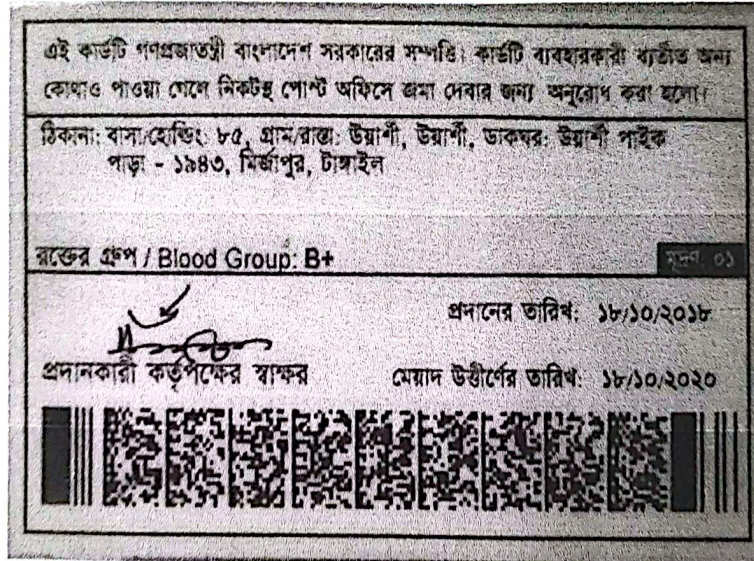 এই কার্ডটি গণপ্রজাতন্ত্রী বাংলাদেশ সরকারের সম্পত্তি। কার্ডটি ব্যবহারকারী ব্যতীত অন্য
কোথাও পাওয়া গেলে নিকটস্থ পোস্ট অফিসে জমা দেবার জন্য অনুরোধ করা হলো।
ঠিকানা: বাসা/হোল্ডিং: ৮৫, গ্রাম/রাস্তা: উয়ার্শী, উয়ার্শী, ডাকঘর: উয়ার্শী পাইক
পাড়া - ১৯৪৩, মির্জাপুর, টাঙ্গাইল
রক্তের গ্রুপ / Blood Group: B+
মূদ্রণ: ০১
প্রদানের তারিখ: ১৮/১০/২০১৮
প্রদানকারী কর্তৃপক্ষের স্বাক্ষর
মেয়াদ উত্তীর্ণের তারিখ: ১৮/১০/২০২০